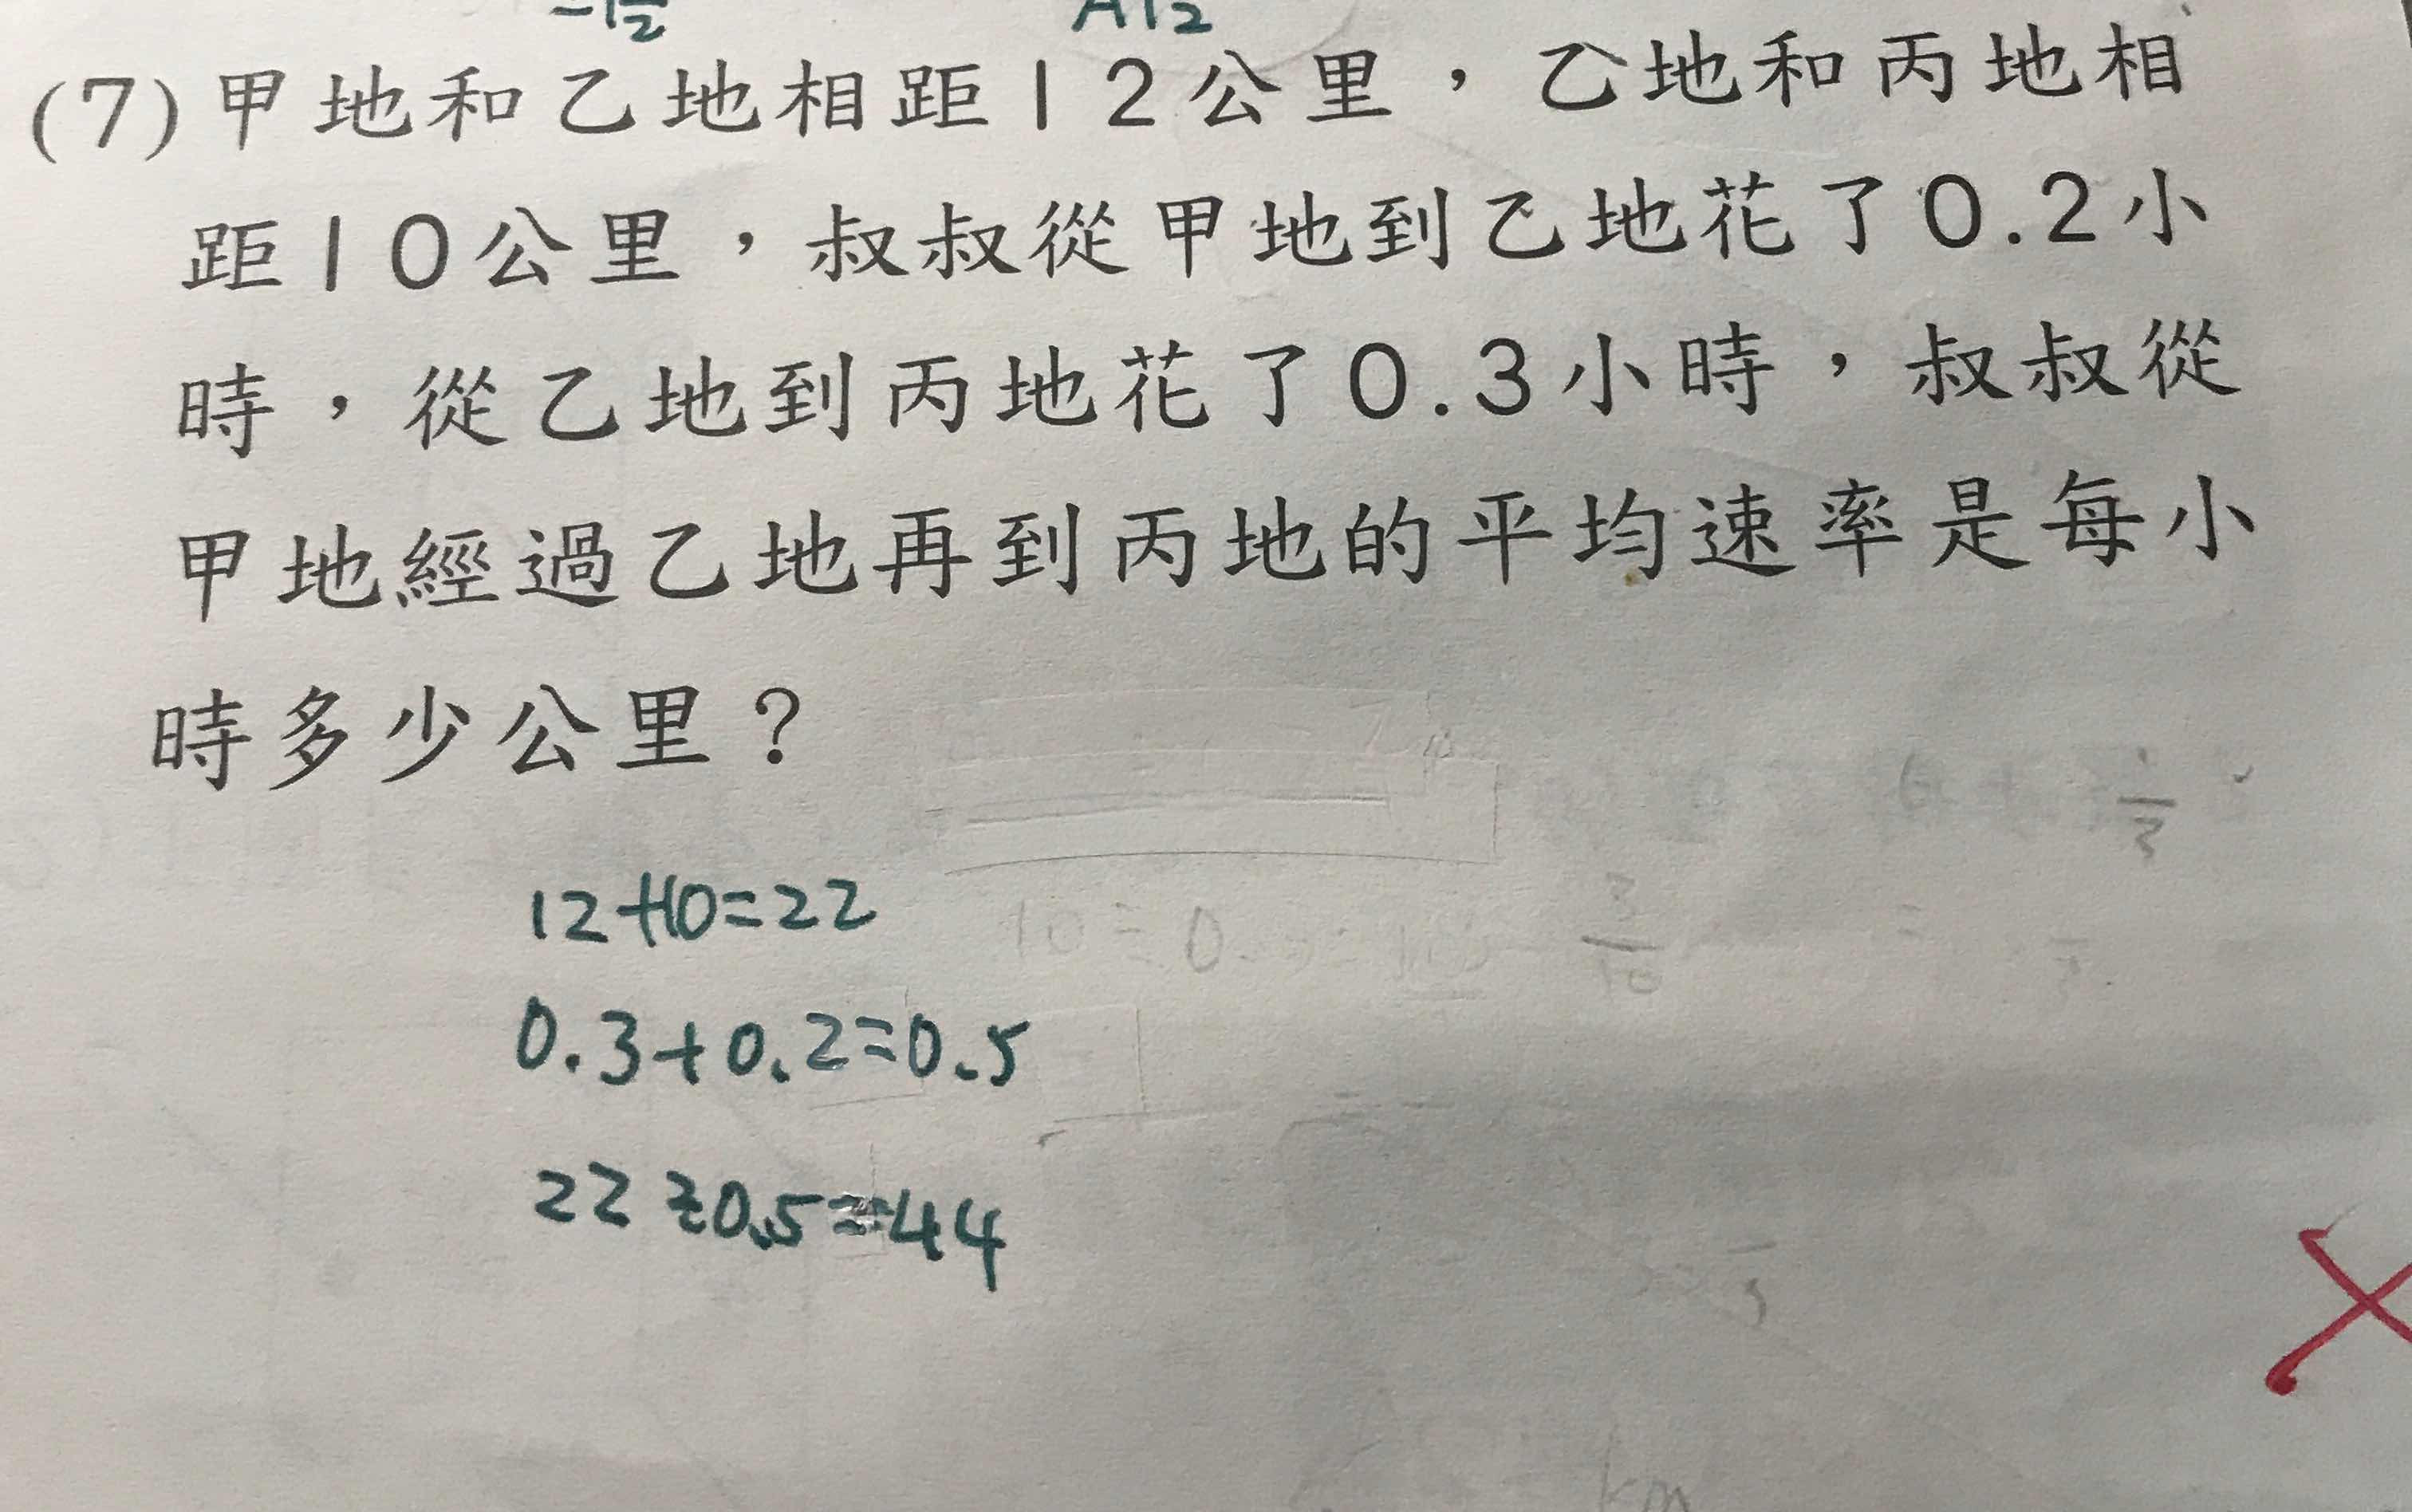 (7)甲地和乙地相距12公里，乙地和丙地相
距10公里，叔叔從甲地到乙地花了0.2小
時，從乙地到丙地花了0.3小時，叔叔從
甲地經過乙地再到丙地的平均速率是每小
時多少公里？
12+10=22
0.3+0.2=0.5
22÷0.5=44
km